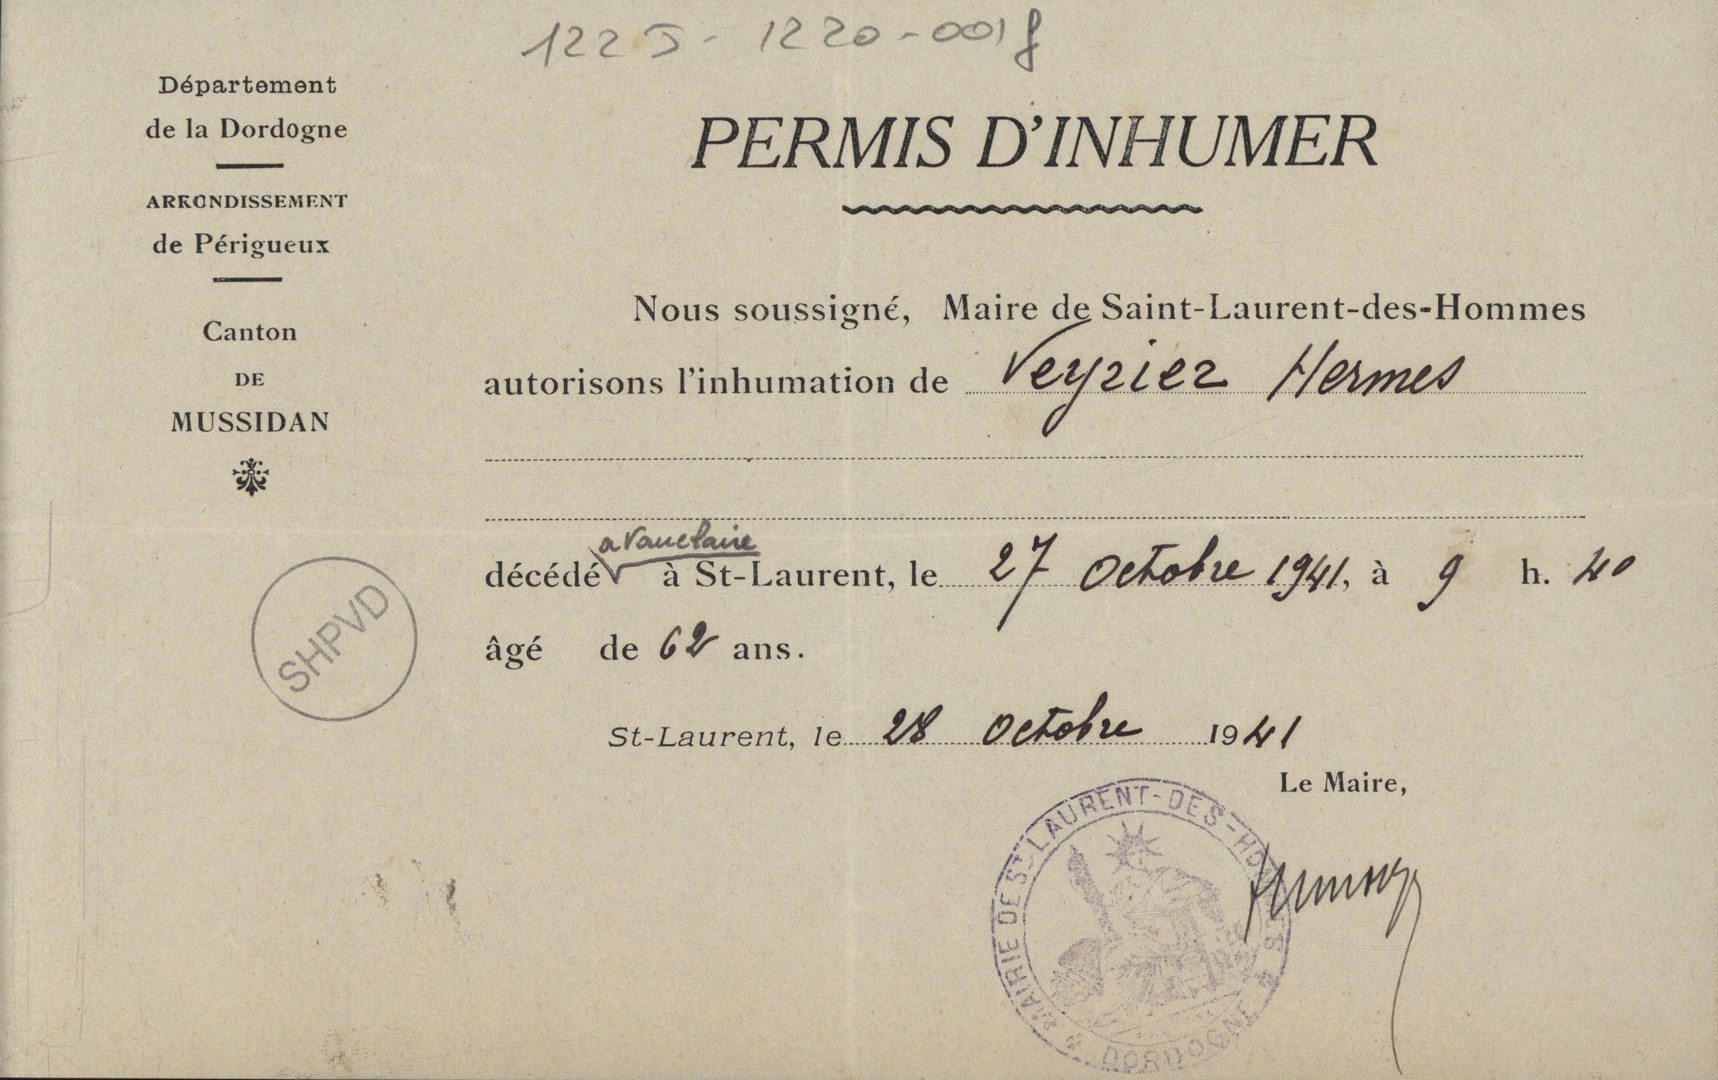 122 J - 1220-001f
Département
de la Dordogne
ARRONDISSEMENT
de Périgueux
Canton
DE
MUSSIDAN
SHPVD
PERMIS D'INHUMER
Nous soussigné, Maire de Saint-Laurent-des-Hommes
autorisons l'inhumation de Veyrier Hermes
a Vauclaire
décédé à St-Laurent, le 27 Octobre 1941, à 9 h. 40
âgé de 62 ans.
St-Laurent, le 28 Octobre 1941
Le Maire,
MAIRIE DE ST-LAURENT-DES-HOMMES
DORDOGNE